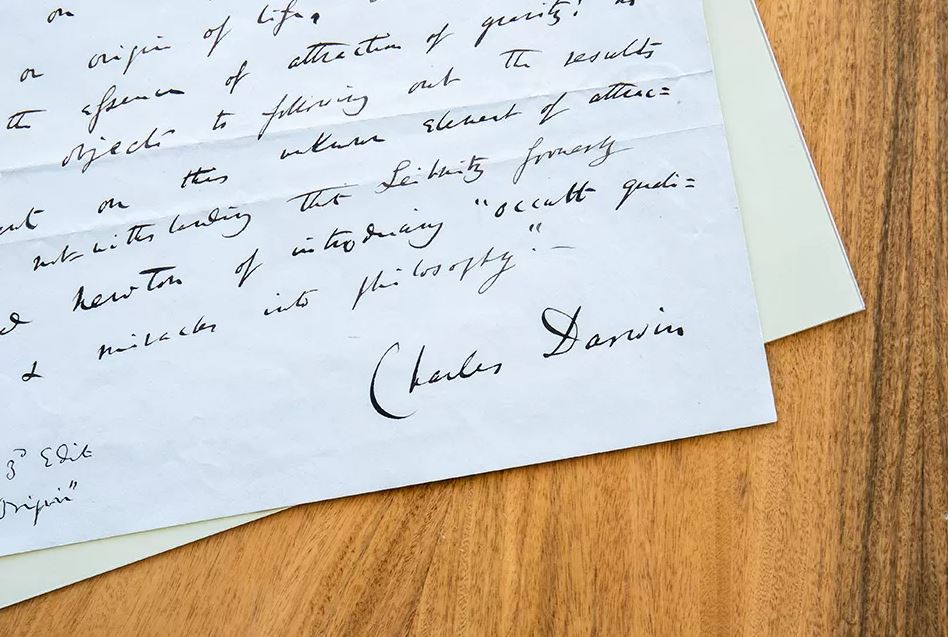 on
or origin of life.
the essence of attraction of gravity? No
objects to following out the results
on this unknown element of attrac=
notwithstanding that Leibnitz formerly
Newton of introducing "occult quali=
& miracles into philosophy".—
Charles Darwin
3d Edit
Origin"